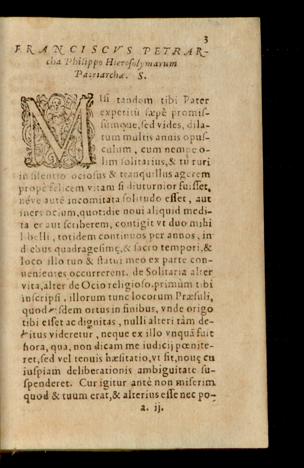 3
FRANCISCVS PETRAR-
cha Philippo Hierosolymarum
Patriarchæ. S.
MIsi tandem tibi Pater
expetitũ sæpè promis-
sũmque, sed vides, dila-
tum multis annis opus-
culum, cum nempe o-
lim solitarius, & tũ ruri
in silentio ociosus & tranquillus agerem
propè felicem vitam si diuturnior fuisset,
néve autē incomitata solitudo esset, aut
iners ocium, quotidie noui aliquid medi-
ta er aut scriberem, contigit vt duo mihi
libelli, totidem continuos per annos, in
diebus quadragesimę, & sacro tempori, &
loco illo tuo & statui meo ex parte con-
uenientes occurrerent. de Solitaria alter
vita, alter de Ocio religioso, primùm tibi
inscripsi, illorum tunc locorum Præsuli,
quod sdem ortus in finibus, vnde origo
tibi esset ac dignitas, nulli alteri tàm de-
itus videretur, neque ex illo vnquã fuit
hora, qua, non dicam me iudicij pœnite-
ret, sed vel tenuis hæsitatio, vt sit, nouę cu
iuspiam deliberationis ambiguitate su-
spenderet. Cur igitur antè non miserim
quod & tuum erat, & alterius esse nec po-
a. ij.